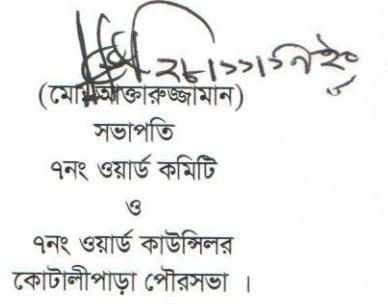 ২৮।১১।১৭ইং
(মোঃ আক্তারুজ্জামান)
সভাপতি
৭নং ওয়ার্ড কমিটি
ও
৭নং ওয়ার্ড কাউন্সিলর
কোটালীপাড়া পৌরসভা ।